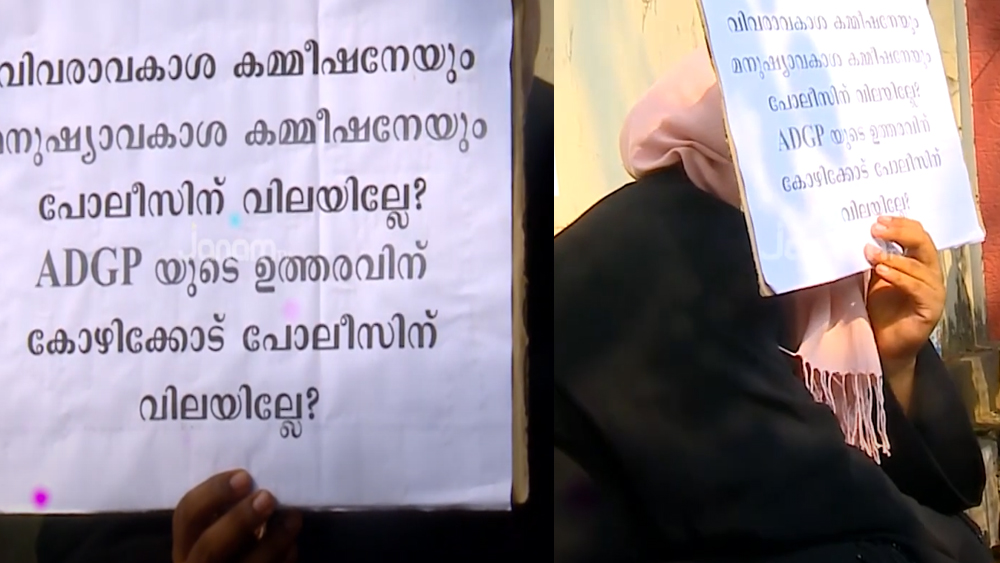 വിവരാവകാശ കമ്മീഷനേയും
മനുഷ്യാവകാശ കമ്മീഷനേയും
പോലീസിന് വിലയില്ലേ?
ADGP യുടെ ഉത്തരവിന്
കോഴിക്കോട് പോലീസിന്
വിലയില്ലേ?
Janam
വിവരാവകാശ കമ്മീഷനേയും
മനുഷ്യാവകാശ കമ്മീഷനേയും
പോലീസിന് വിലയില്ലേ?
ADGP യുടെ ഉത്തരവിന്
കോഴിക്കോട് പോലീസിന്
വിലയില്ലേ?